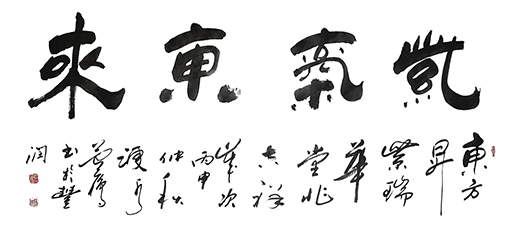 紫氣東來
東方
昇
紫瑞
華
堂兆
吉祥
歲次
丙申
仲秋
書於豐
润